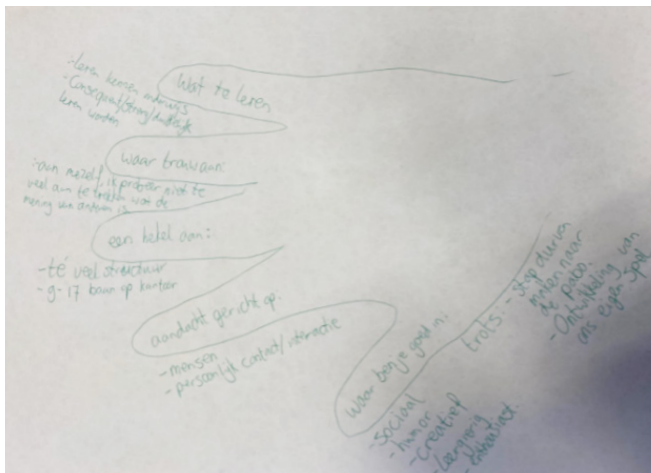 wat te leren
- leren kennen onderwijs
- Consequent/streng/duidelijk
leren worden
waar trouw aan:
- aan mezelf, ik probeer niet te
veel aan te trekken wat de
mening van anderen is
een hekel aan:
- té veel structuur
- 9-17 baan op kantoor
aandacht gericht op:
- mensen
- persoonlijk contact/interactie
waar ben je goed in:
- sociaal
- humor
- creatief
- leergierig
- enthousiast
trots: - stap durven
maken naar
de pabo.
- Ontwikkeling van
ons eigen spel